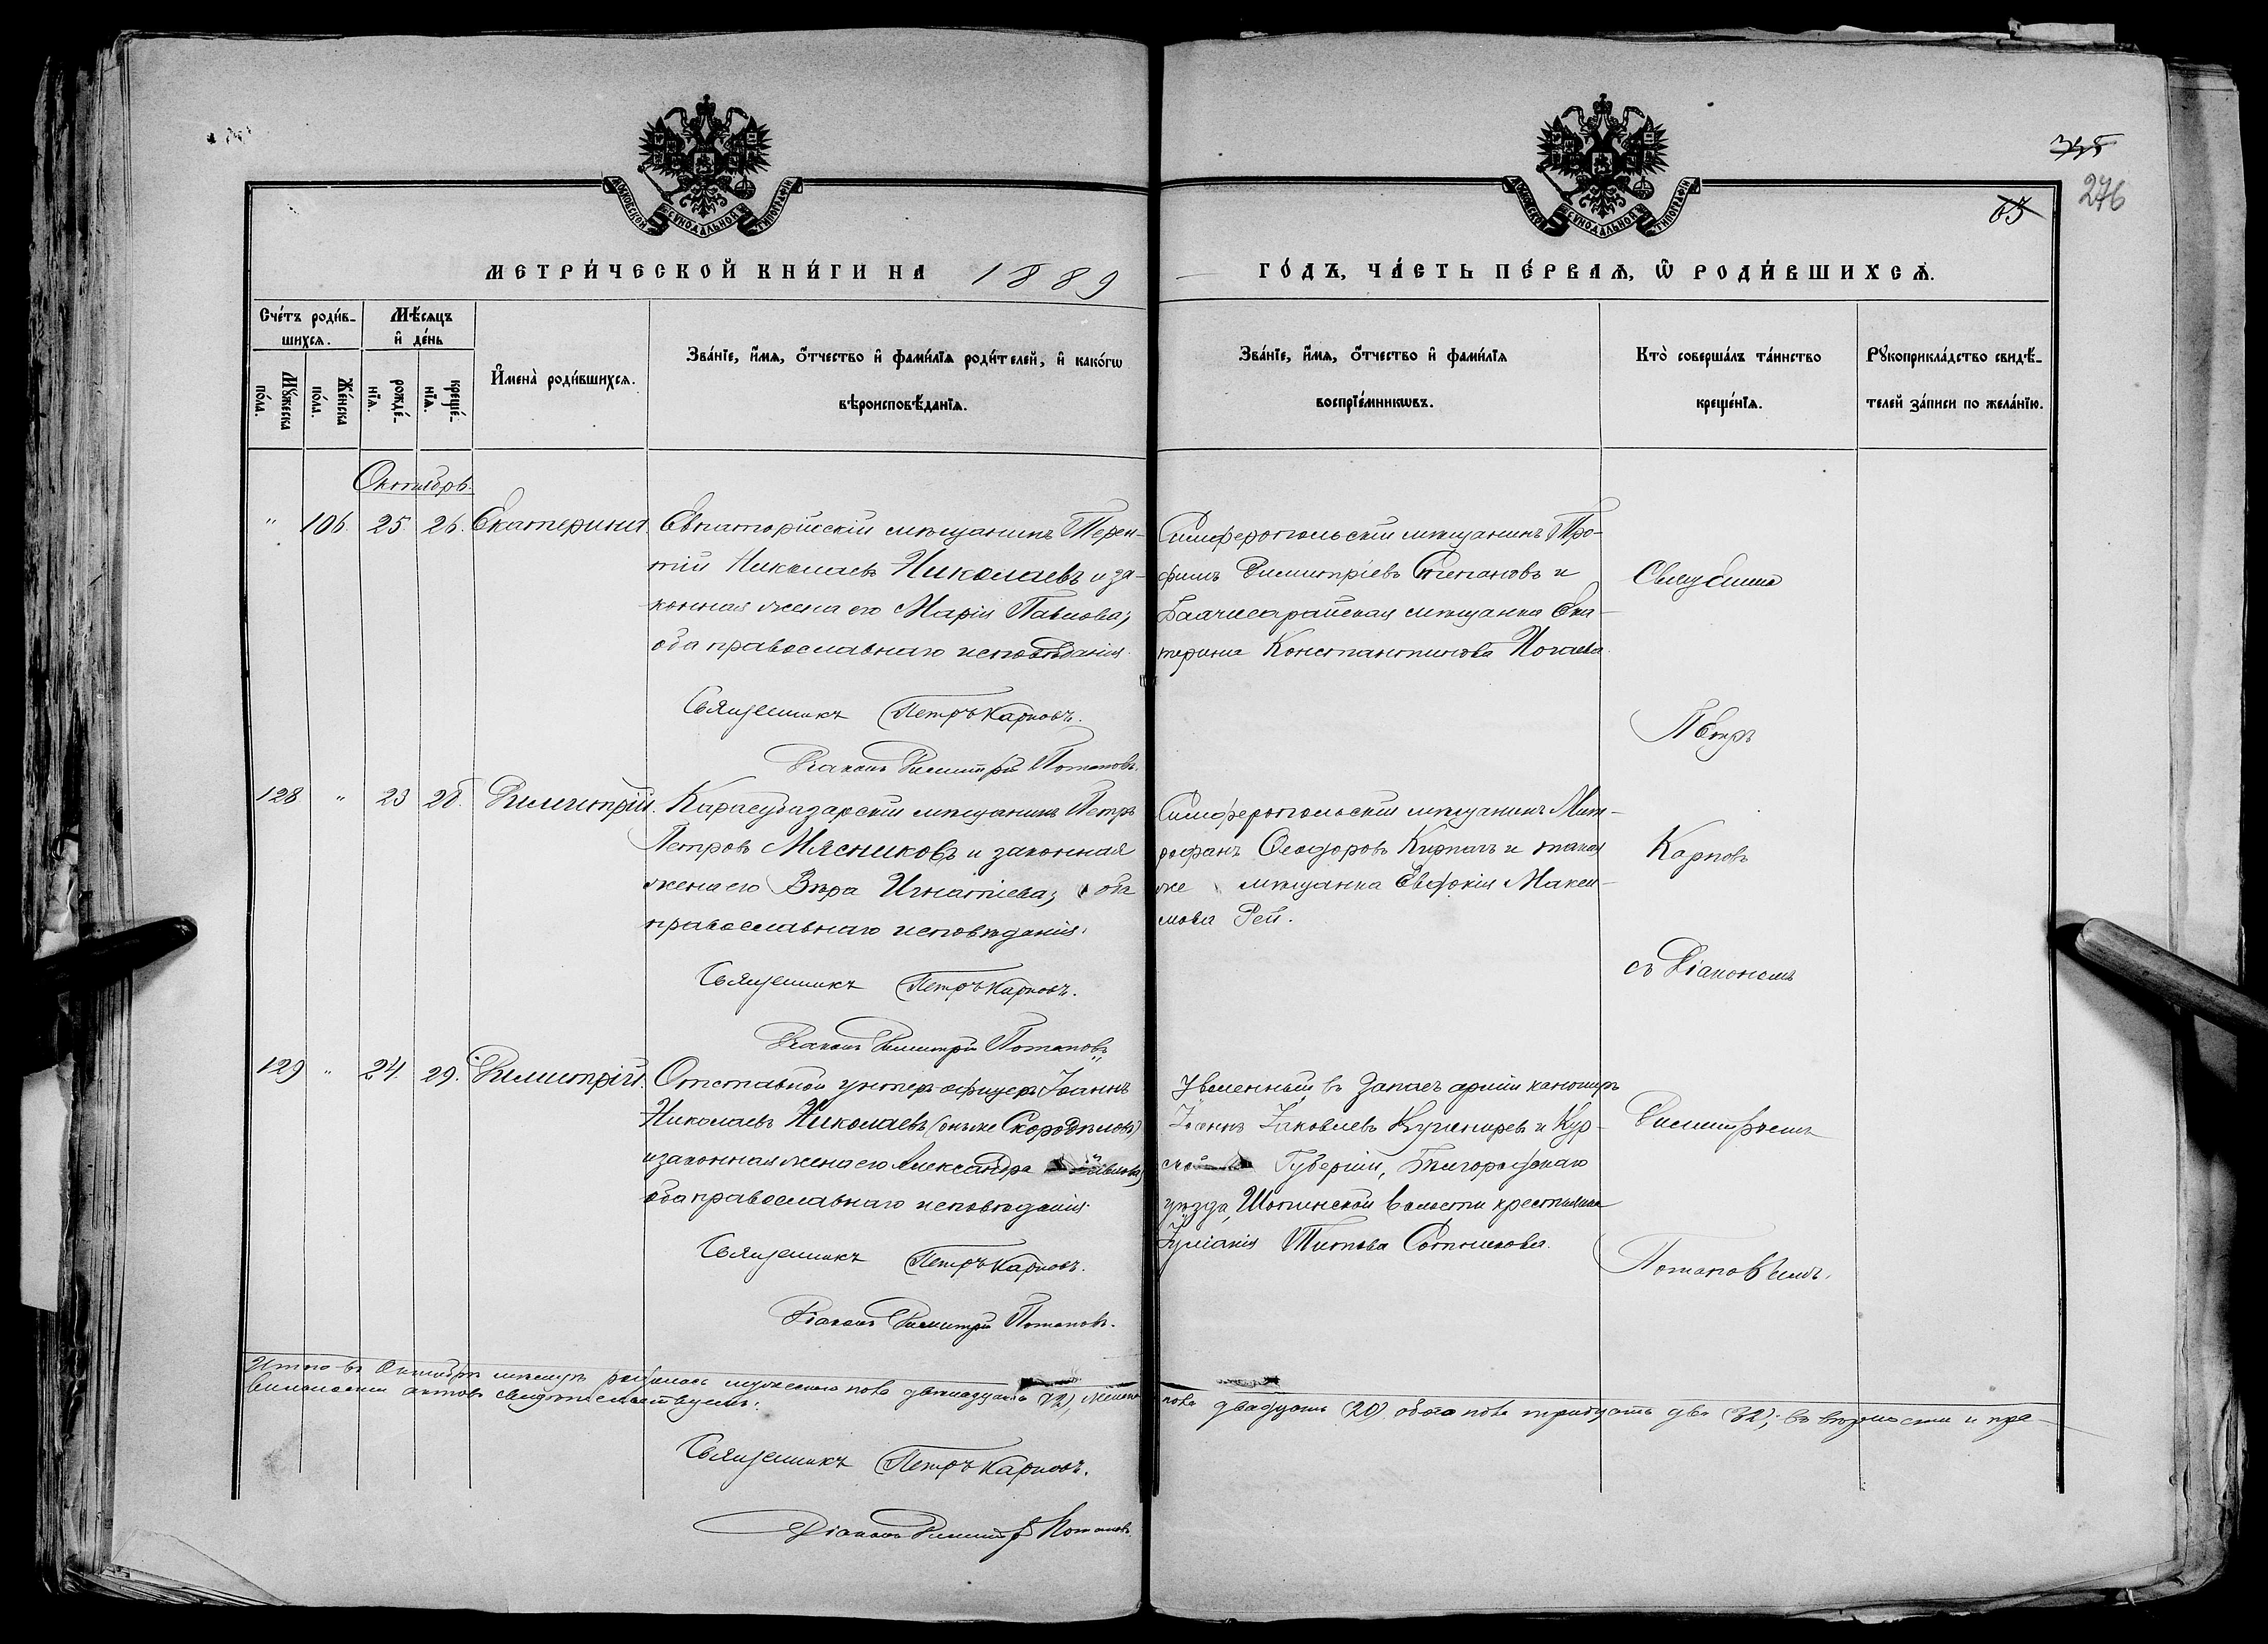 276
65
МОСКОВСКОЙ СѴНОДАЛЬНОЙ ТИПОГРАФІИ
МОСКОВСКОЙ СѴНОДАЛЬНОЙ ТИПОГРАФІИ
МЕТРИ́ЧЕСКОЙ КНИ́ГИ НА 1889
ГО́ДЪ, ЧА́СТЬ ПЕ́РВАѦ, Ѡ҆ РОДИ́ВШИХСѦ.
Сче́тъ роди́в-
шихсѧ.
Мѣ́сѧцъ
и҆ де́нь
Мꙋ́жеска
по́ла.
Же́нска
по́ла.
рожде́-
нїѧ.
креще́-
нїѧ.
И҆мена̀ роди́вшихсѧ.
Зва́нїе, и҆́мѧ, ѻ҆́тчество и҆ фами́лїѧ роди́телей, и҆ како́гѡ
вѣроисповѣ́данїѧ.
Зва́нїе, и҆́мѧ, ѻ҆́тчество и҆ фами́лїѧ
воспрїе́мникѡвъ.
Кто̀ соверша́лъ та́инство
креще́нїѧ.
Рꙋкоприкла́дство свидѣ́-
телей за́писи по жела́нїю.
Октябрь.
" 106. 25. 26. Екатерина. Евпаторійскій мѣщанинъ Терен-
тій Николаевъ Николаевъ и за-
конная жена его Марія Павлова;
оба православнаго исповѣданія.
Священникъ Петръ Карповъ.
Діаконъ Димитрій Потаповъ.
Симферопольскій мѣщанинъ Тро-
фимъ Димитріевъ Степановъ и
Бахчисарайская мѣщанка Ека-
терина Константинова
Священникъ
Петръ
128 " 23 28. Димитрій. Карасубазарскій мѣщанинъ Петръ
Петровъ Мясниковъ и законная
жена его Вѣра Игнатіева; оба
православнаго исповѣданія.
Священникъ Петръ Карповъ.
Діаконъ Димитрій Потаповъ
Симферопольскій мѣщанинъ Мит-
рофанъ Ѳеодоровъ Кирпачъ и такая
же мѣщанка Евдокія Макси-
мова Рей.
Карповъ
съ Діакономъ
129 " 24. 29. Димитрій. Отставной унтеръ офицеръ Іоаннъ
Николаевъ Николаевъ (онъ же Скородѣловъ)
и законная жена его Александра
оба православнаго исповѣданія.
Священникъ Петръ Карповъ.
Діаконъ Димитрій Потаповъ.
Уволенный въ запасъ арміи канониръ
Іоаннъ Іаковлевъ Кушниревъ и Кур-
ской Губерніи, Бѣлгородскаго
уѣзда, Шопинской волости крестьянка
Іуліанія Титова Сотникова.
Димитріемъ
Потаповымъ.
Итого въ Октябрѣ мѣсяцѣ родилось мужескаго пола двѣнадцать (12), женска пола двадцать (20) обоего пола тридцать два (32); въ вѣрности и пра-
вильности актовъ свидѣтельствуемъ:
Священникъ Петръ Карповъ.
Діаконъ Димитрій Потаповъ.